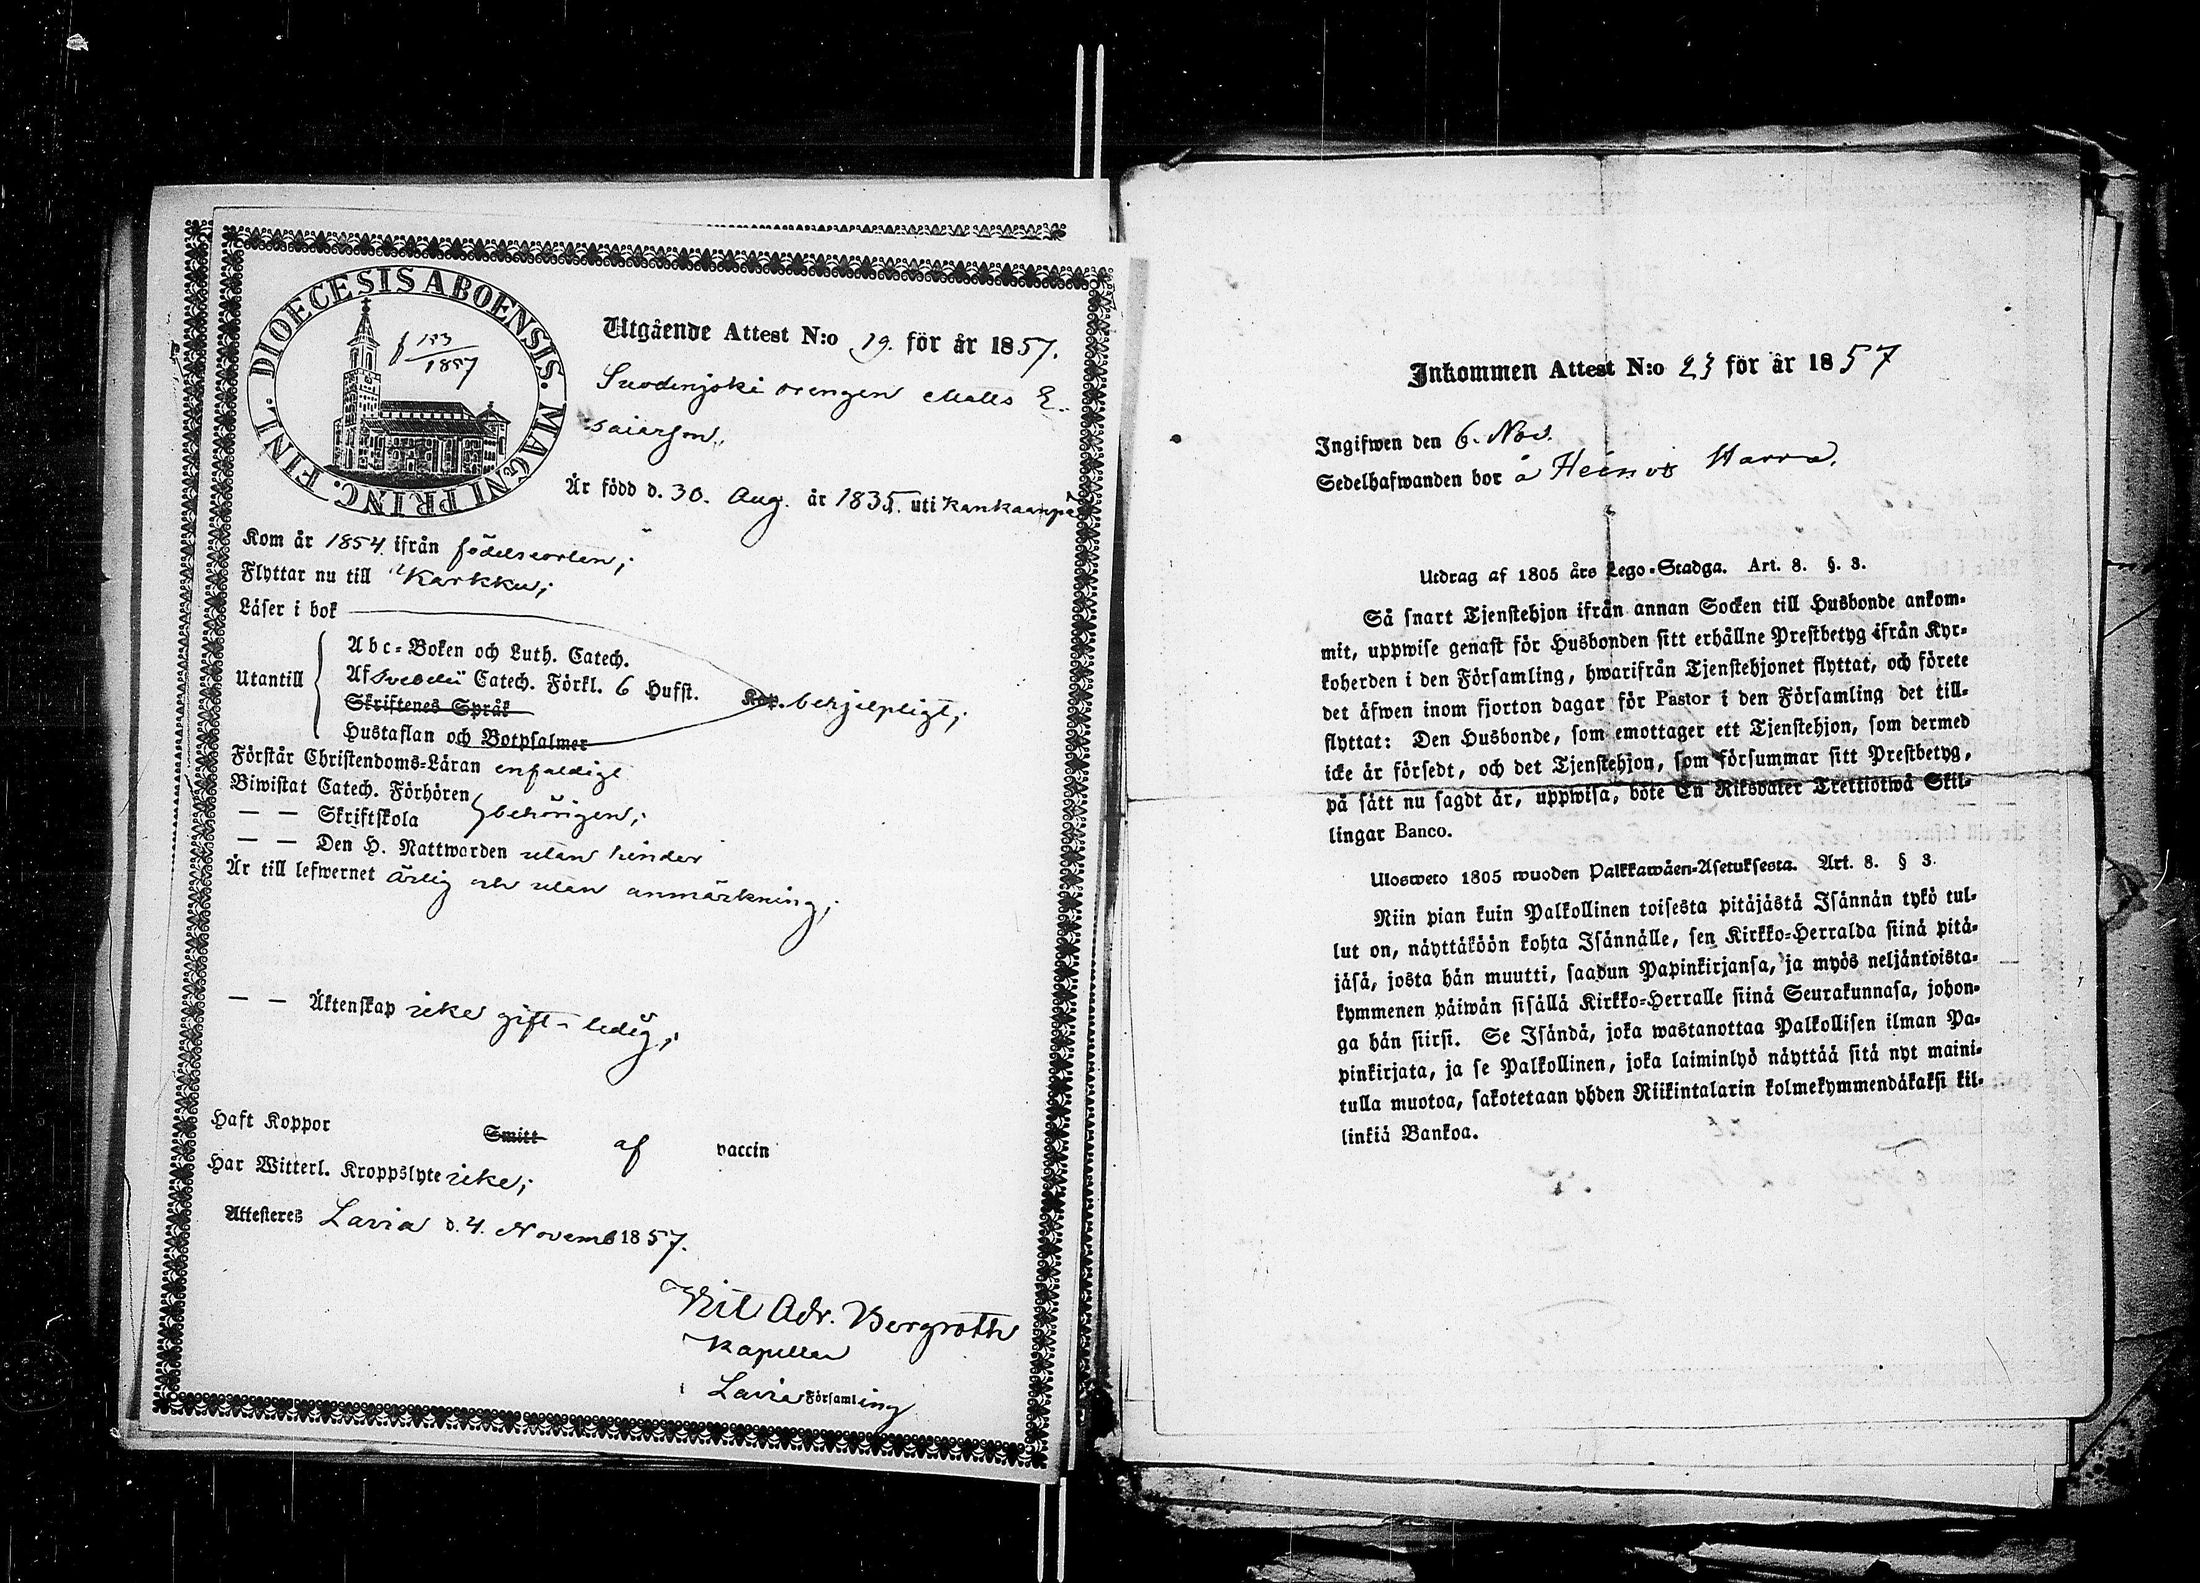 DIOECESIS ABOENSIS. MAGNI PRINC. FINL.
153
1857
Utgående Attest N:o 19. för år 1857.
Suodenjoki drengen Matts E-
saiasson,
Är född d. 30. Aug. år 1835. uti Kankaanpä
Kom år 1854 ifrån födelseorten;
Flyttar nu till Karkku;
Läser i bok
Utantill
Abc-Boken och Luth. Catech.
Af Svebelii Catech. Förkl. 6 Hufst.
Skriftenes Språk
Hustaflan och Botpsalmer
behjelpligt;
Förstår Christendoms-Läran enfaldigt
Biwistat Catech. Förhören
— — Skriftskola behörigen;
— — Den H. Nattwarden utan hinder
Är till lefwernet ärlig och utan anmärkning;
— — Äktenskap icke gift - ledig;
Haft Koppor Smitt af vaccin
Har Witterl. Kroppslyte icke;
Attesteres Lavia d. 4. Novemb 1857.
Vil Adr. Bergroth
Kapellan
Lavia Församling
Inkommen Attest N:o 23 för år 1857
Ingifwen den 6. Nov.
Sedelhafwanden bor å Heinoo Harra.
Utdrag af 1805 års Lego-Stadga. Art. 8. §. 3.
Så snart Tjenstehjon ifrån annan Socken till Husbonde ankom-
mit, uppwise genast för Husbonden sitt erhållne Prestbetyg ifrån Kyr-
koherden i den Församling, hwarifrån Tjenstehjonet flyttat, och förete
det äfwen inom fjorton dagar för Pastor i den Församling det till-
flyttat: Den Husbonde, som emottager ett Tjenstehjon, som dermed
icke är försedt, och det Tjenstehjon, som försummar sitt Prestbetyg,
på sätt nu sagdt är, uppwisa, böte En Riksdaler Trettiotwå Skil-
lingar Banco.
Ulosweto 1805 wuoden Palkkawäen-Asetuksesta. Art. 8. § 3.
Niin pian kuin Palkollinen toisesta pitäjästä Isännän tykö tul-
lut on, näyttäköön kohta Isännälle, sen Kirkko-Herralda siinä pitä-
jäsä, josta hän muutti, saadun Papinkirjansa, ja myös neljäntoista-
kymmenen päiwän sisällä Kirkko-Herralle siinä Seurakunnasa, johon-
ga hän siirsi. Se Isändä, joka wastanottaa Palkollisen ilman Pa-
pinkirjata, ja se Palkollinen, joka laiminlyö näyttää sitä nyt maini-
tulla muotoa, sakotetaan yhden Riikintalarin kolmekymmendäkaksi kil-
linkiä Bankoa.